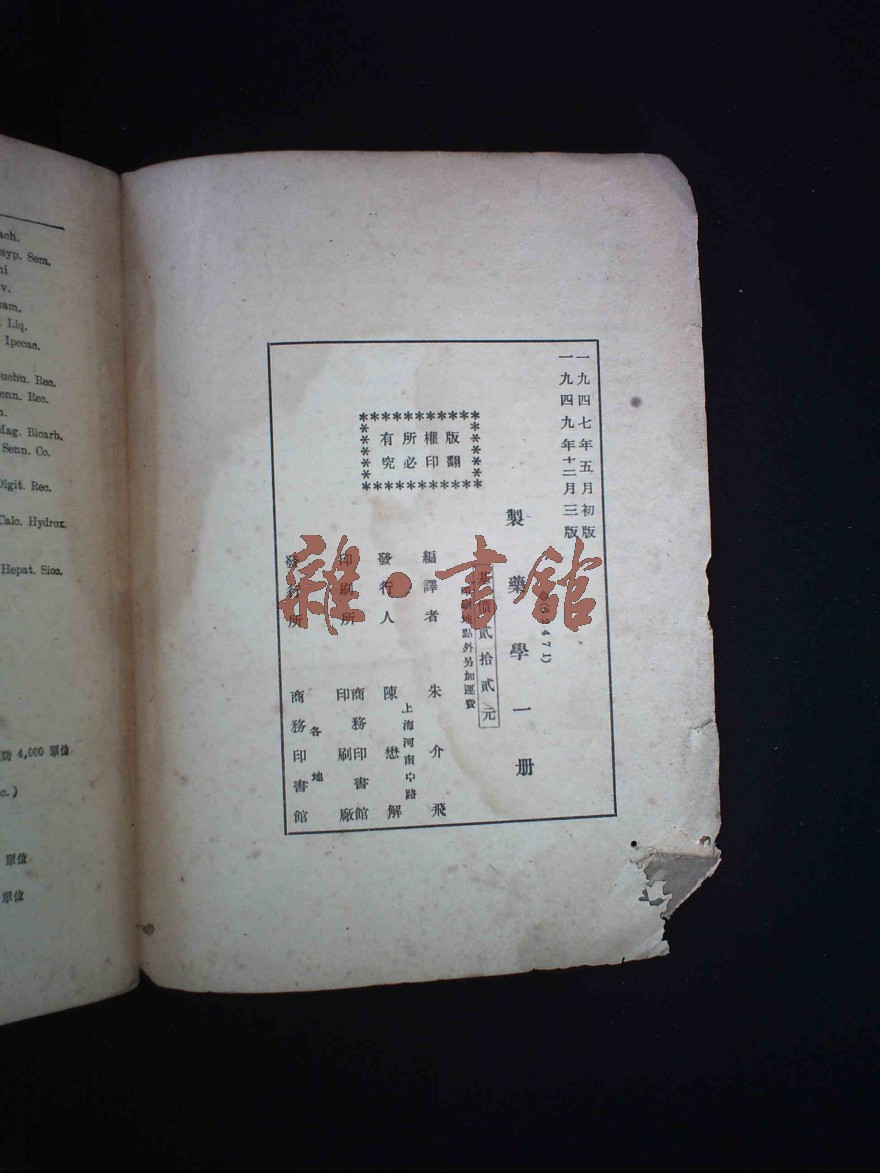 ach.
ayp. Sem.
ni
v.
nam.
Liq.
Ipecac.
Buchu. Rec.
enn. Rec.
n.
Mag. Bicarb.
Senn. Co.
Digit. Rec.
Calc. Hydrox
Hepat. Sicc.
防 4,000 單位
c.)
單位
單位
一九四七年五月初版
一九四九年十二月三版
製藥學一册
471)
基價貳拾貳元
印刷地點外另加運費
版權所有
翻印必究
編譯者 朱介飛
發行人 陳懋解
上海河南中路
印刷所 商務印書館
印刷廠
發行所 商務印書館
各地
雜·書館